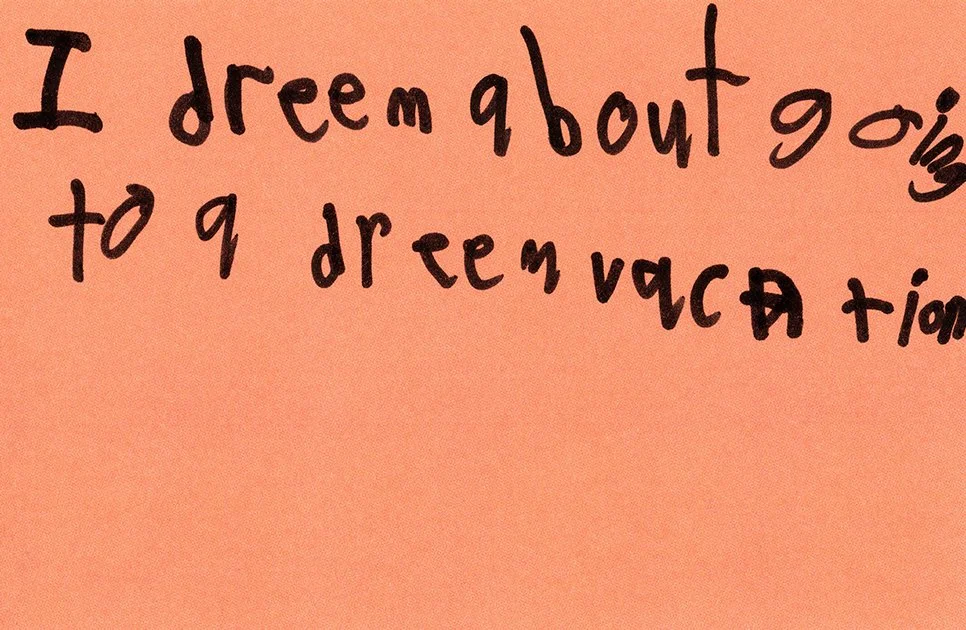 I dreem about going
to a dreem vacation